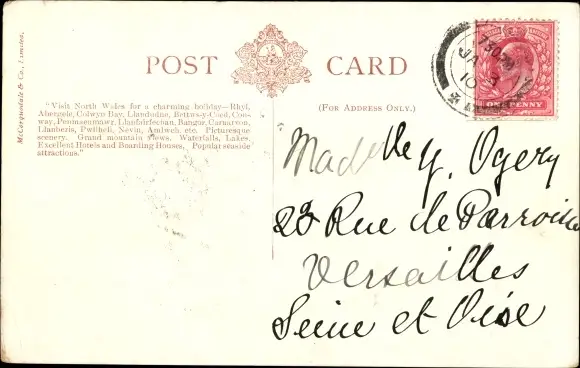 McCorquodale & Co., London.
POST CARD
"Visit North Wales for a charming holiday—Rhyl,
Abergele, Colwyn Bay, Llandudno, Bettws-y-Coed, Con-
way, Penmaenmawr, Llanfairfechan, Bangor, Carnarvon,
Llanberis, Pwllheli, Nevin, Amlwch, etc. Picturesque
scenery. Grand mountain views. Waterfalls, Lakes.
Excellent Hotels and Boarding Houses. Popular seaside
attractions."
(FOR ADDRESS ONLY.)
7.30PM
JA 3
10
ONE PENNY
Madelle Y. Ogery
23 Rue de Parroisse
Versailles
Seine et Oise